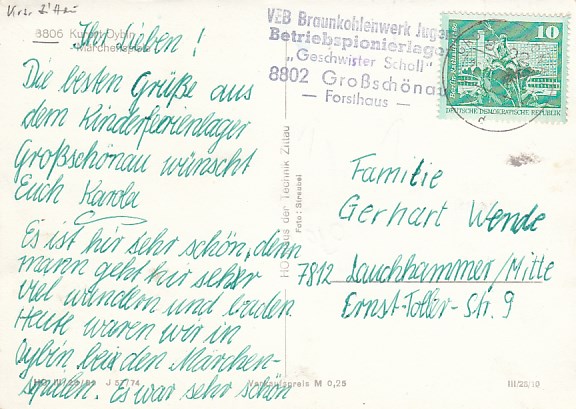 8806 Kurort Oybin
Märchenspiele
Ihr Lieben!
Die besten Grüße aus
dem Kinderferienlager
Großschönau wünscht
Euch Karola
Es ist hir sehr schön, denn
mann geht hir sehr
viel wandern und baden.
Heute waren wir in
Oybin bei den Märchen-
spielen. Es war sehr schön
VEB Braunkohlenwerk Jugend
Betriebspionierlager
„Geschwister Scholl"
8802 Großschönau
— Forsthaus —
10
DEUTSCHE DEMOKRATISCHE REPUBLIK
Familie
Gerhart Wende
7812 Lauchhammer/Mitte
Ernst-Toller-Str. 9
Haus der Technik Zittau
Foto:
J 57/74
Verkaufspreis M 0,25
III/25/10